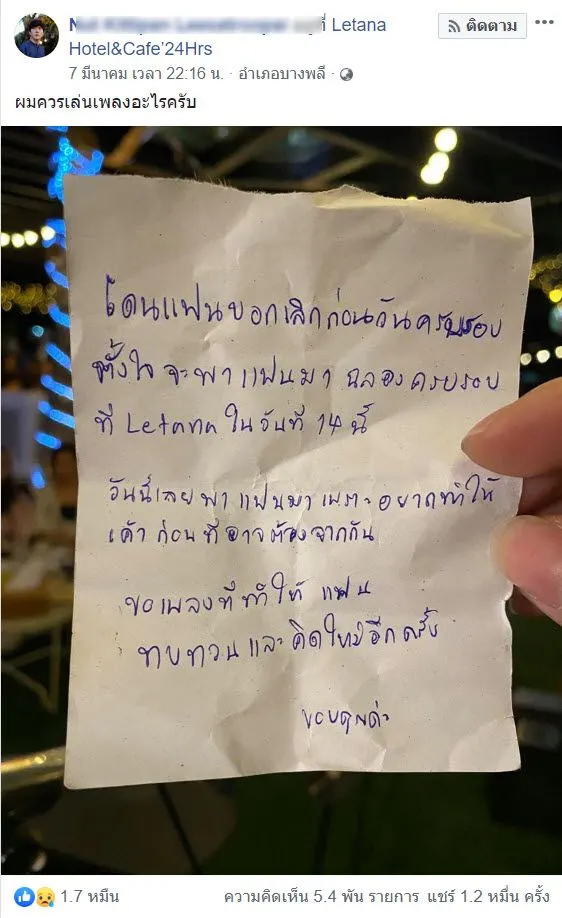 ที่ Letana
Hotel&Cafe'24Hrs
ติดตาม
7 มีนาคม เวลา 22:16 น. · อำเภอบางพลี ·
ผมควรเล่นเพลงอะไรครับ
โดนแฟนบอกเลิกก่อนวันครบรอบ
ตั้งใจจะพาแฟนมา ฉลองครบรอบ
ที่ Letana ในวันที่ 14 นี้
วันนี้เลยพาแฟนมาเพราะอยากทำให้
เค้า ก่อนที่อาจต้องจากกัน
ขอเพลงที่ทำให้ แฟน
ทบทวนและคิดใหม่อีกครั้ง
ขอบคุณค่ะ
1.7 หมื่น
ความคิดเห็น 5.4 พัน รายการ แชร์ 1.2 หมื่น ครั้ง